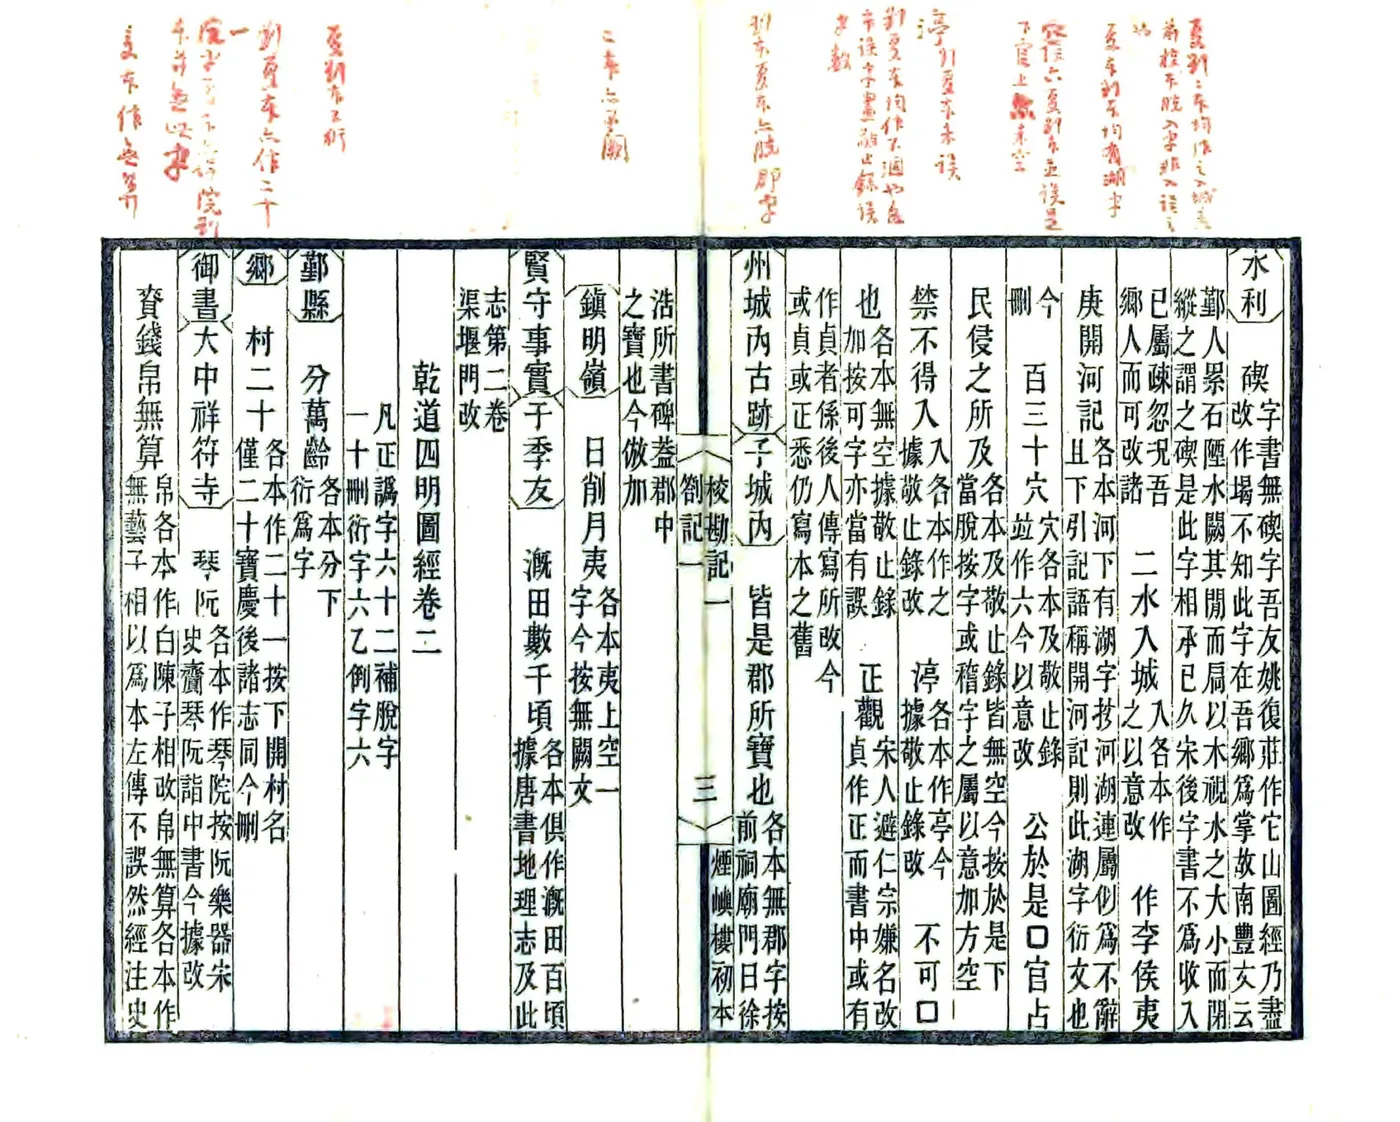 夏劉二本均作之入城是
夏本劉本均有湖字
渟劉夏本未誤
劉本夏本亦脫郡字
二本亦空闕
夏劉本不衍
劉夏本亦作二十一
夏本作無算
水利　碶
字書無碶字吾友姚復莊作它山圖經乃盡
改作堨不知此字在吾鄉爲掌故南豐文云
鄞人累石陻水闕其閒而扃以木視水之大小而閉
縱之謂之碶是此字相承已久宋後字書不爲收入
已屬疎忽況吾
鄉人而可改諸
二水入城
入各本作
之以意改
作李侯夷
庚開河記
各本河下有湖字抄河湖連屬似爲不辭
且下引記語稱開河記則此湖字衍文也
今
刪
百三十穴
穴各本及敬止錄
竝作六今以意改
公於是囗官占
民侵之所及
各本及敬止錄皆無空今按於是下
當脫按字或稽字之屬以意加方空
禁不得入
入各本作之
據敬止錄改
渟
各本作亭今
據敬止錄改
不可囗
也
各本無空據敬止錄
加按可字亦當有誤
正觀
宋人避仁宗嫌名改
貞作正而書中或有
作貞者係後人傳寫所改今
或貞或正悉仍寫本之舊
州城內古跡　子城內　皆是郡所寶也
各本無郡字按
前祠廟門日徐
校勘記一
劄記一
三
煙嶼樓初本
浩所書碑蓋郡中
之寶也今倣加
鎮明嶺　日削月夷
各本夷上空一
字今按無闕文
賢守事實　于季友　溉田數千頃
各本俱作溉田百頃
據唐書地理志及此
志第二卷
渠堰門改
乾道四明圖經卷二
凡正譌字六十二補脫字
一十刪衍字六乙倒字六
鄞縣　分萬齡
各本分下
衍爲字
鄉　村二十
各本作二十一按下開村名
僅二十寶慶後諸志同今刪
御書大中祥符寺　琴阮
各本作琴院按阮樂器宋
史齎琴阮詣中書今據改
賫錢帛無算
帛各本作白陳子相改帛無算各本作
無藝子相以爲本左傳不誤然經注史